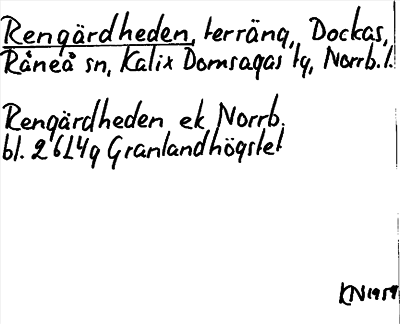 Rengärdheden, terräng, Dockas,
Råneå sn, Kalix Domsagas tg, Norrb. l.
Rengärdheden ek Norrb.
bl. 26 L4g Granlandhögstet
KN 1959